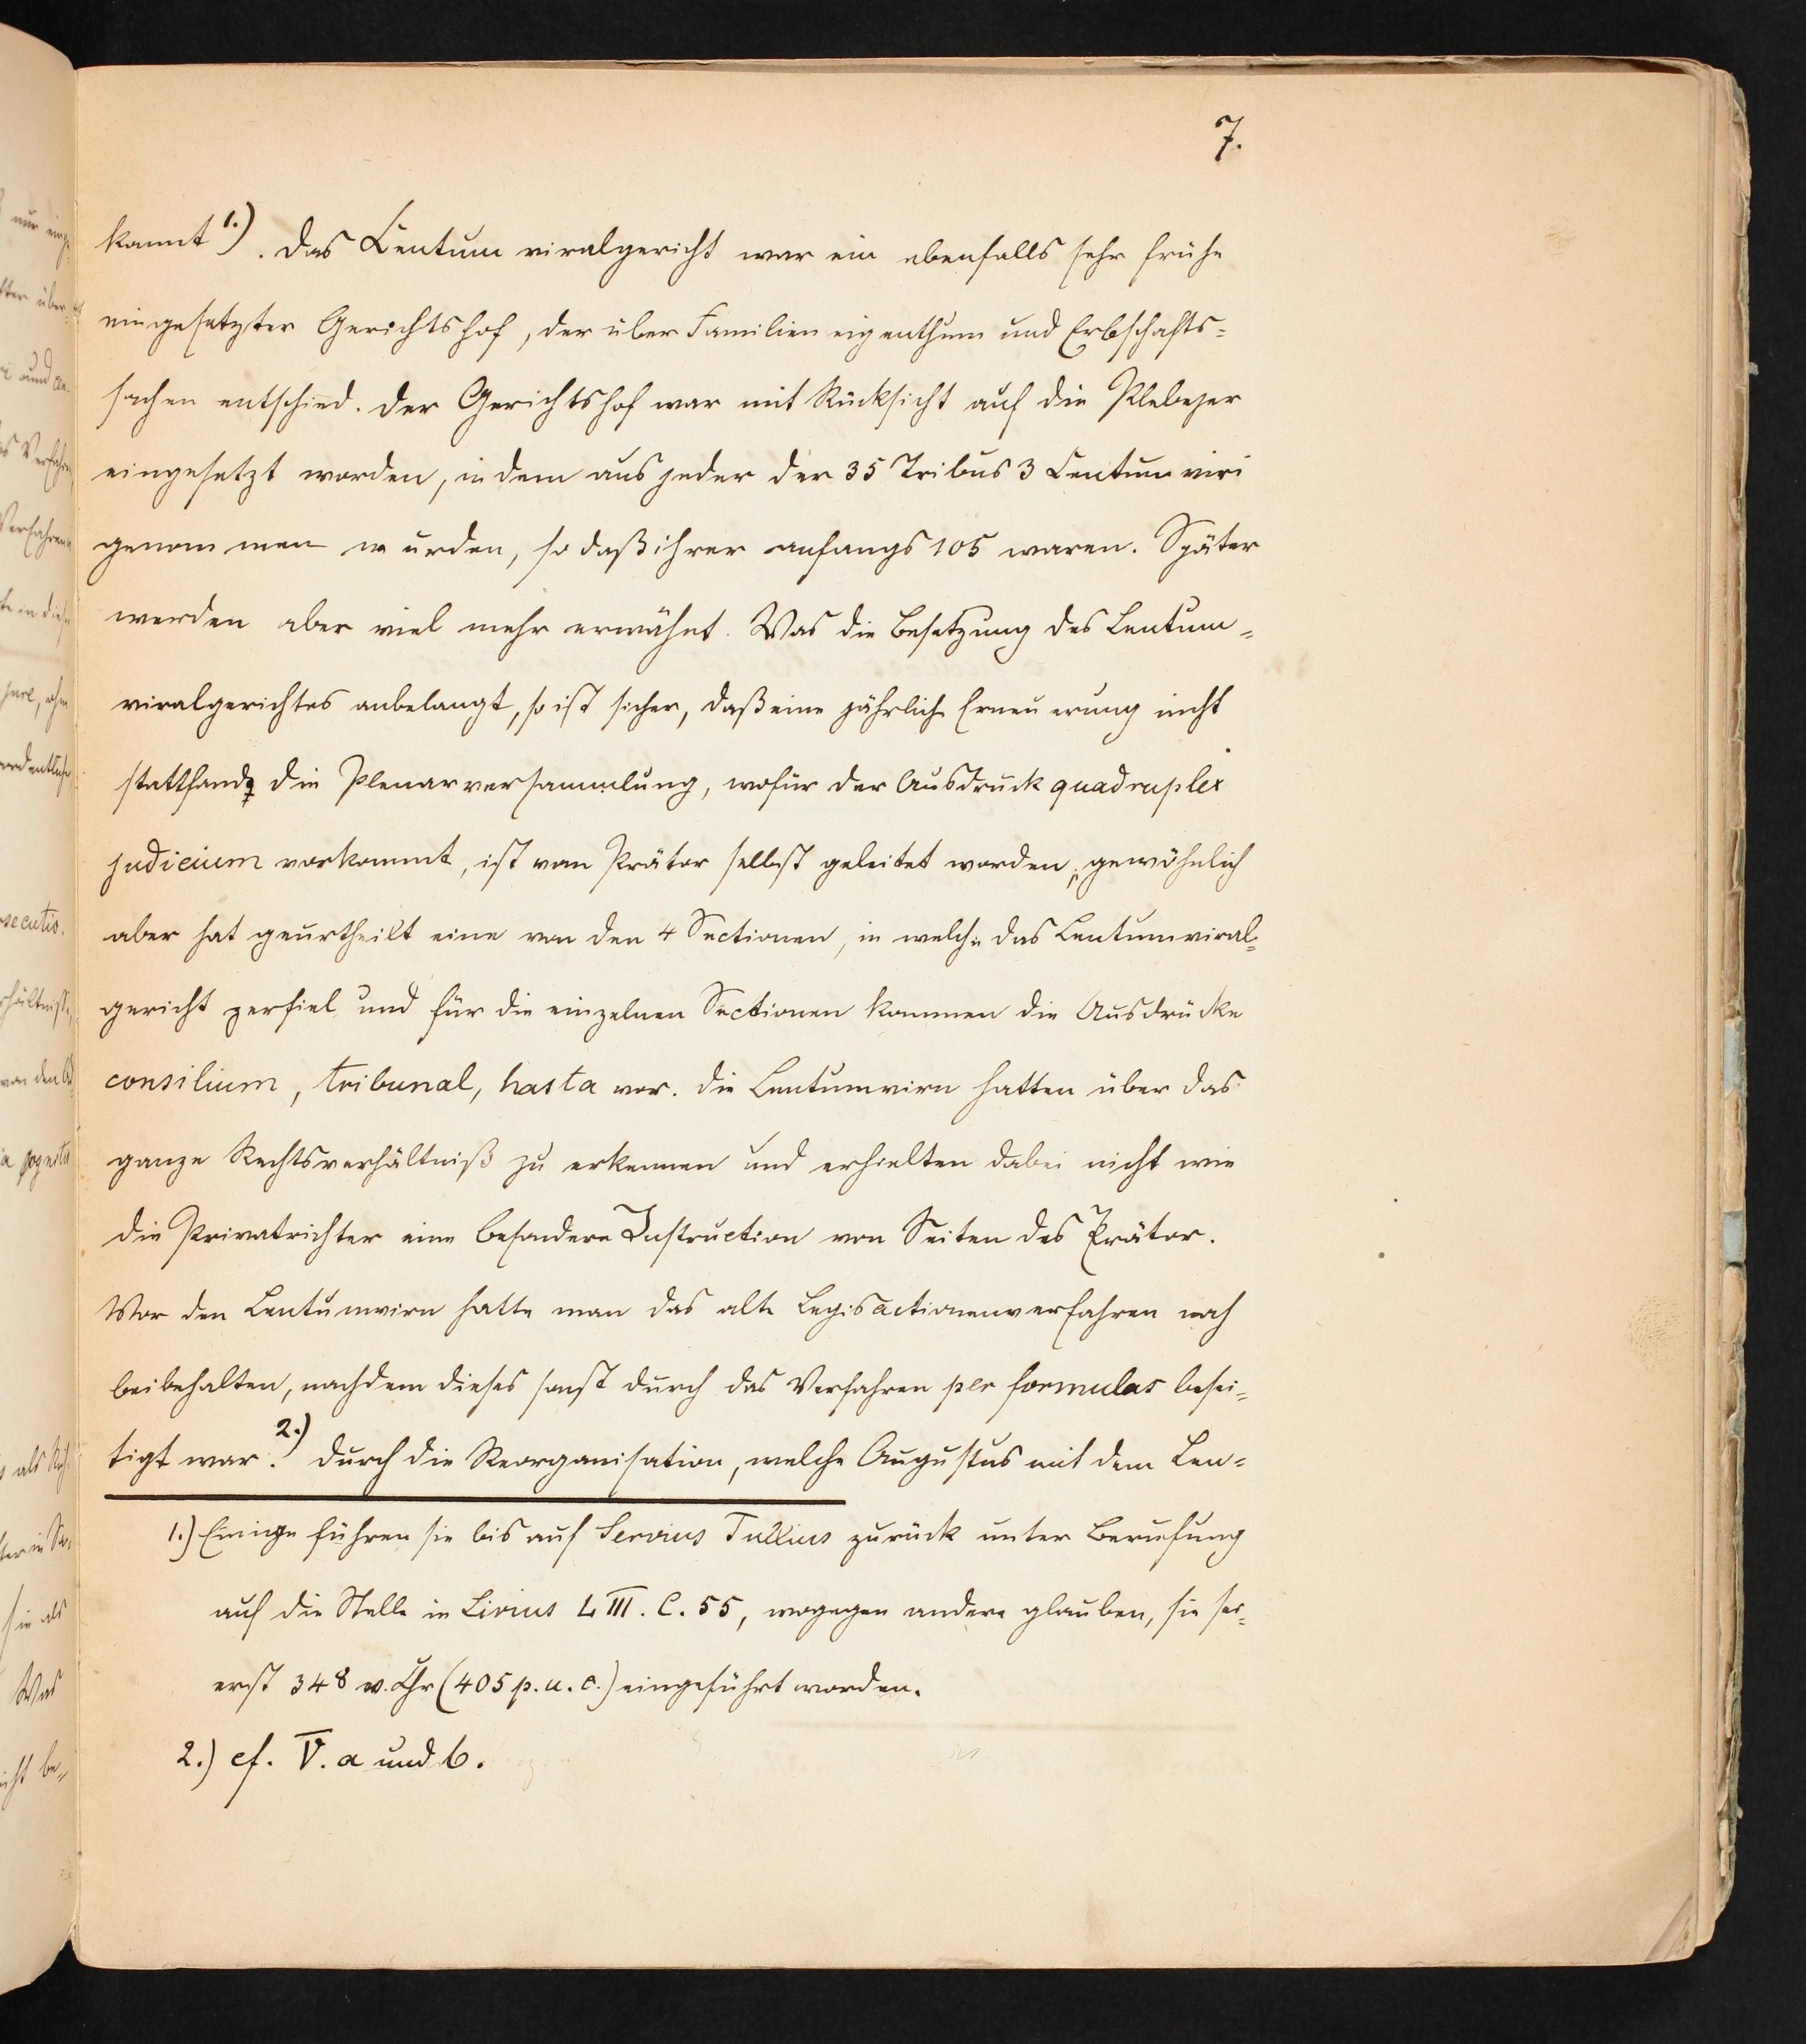 7.
kannt 1.). Das Centumviralgericht war ein ebenfalls sehr frühe
eingesetzter Gerichtshof, der über Familieneigenthum und Erbschafts=
sachen entschied. Der Gerichtshof war mit Rücksicht auf die Plebejer
eingesetzt worden, indem aus jeder der 35 Tribus 3 Centumviri
genommen wurden, so daß ihrer anfangs 105 waren. Später
werden aber viel mehr erwähnt. Was die Besetzung des Centum=
viralgerichtes anbelangt, so ist sicher, daß eine jährliche Erneuerung nicht
stattfand. Die Plenarversammlung, wofür der Ausdruck quadruplex
judicium vorkommt, ist vom Prätor selbst geleitet worden; gewöhnlich
aber hat geurtheilt eine von den 4 Sectionen, in welche das Centumviral=
gericht zerfiel und für die einzelnen Sectionen kommen die Ausdrücke
consilium, tribunal, hasta vor. Die Centumvirn hatten über das
ganze Rechtsverhältniß zu erkennen und erhielten dabei nicht wie
die Privatrichter eine besondere Instruction von Seiten des Prätor.
Vor den Centumvirn hatte man das alte Legisactionenverfahren noch
beibehalten, nachdem dieses sonst durch das Verfahren per formulas besei=
tigt war. 2.) Durch die Reorganisation, welche Augustus mit dem Cen=
1.) Einige führen sie bis auf Servius Tullius zurück unter Berufung
auf die Stelle in Livius L III. C. 55, wogegen andere glauben, sie sei=
erst 348 v. Chr (405 p. u. c.) eingeführt worden.
2.) cf. V. a und b.